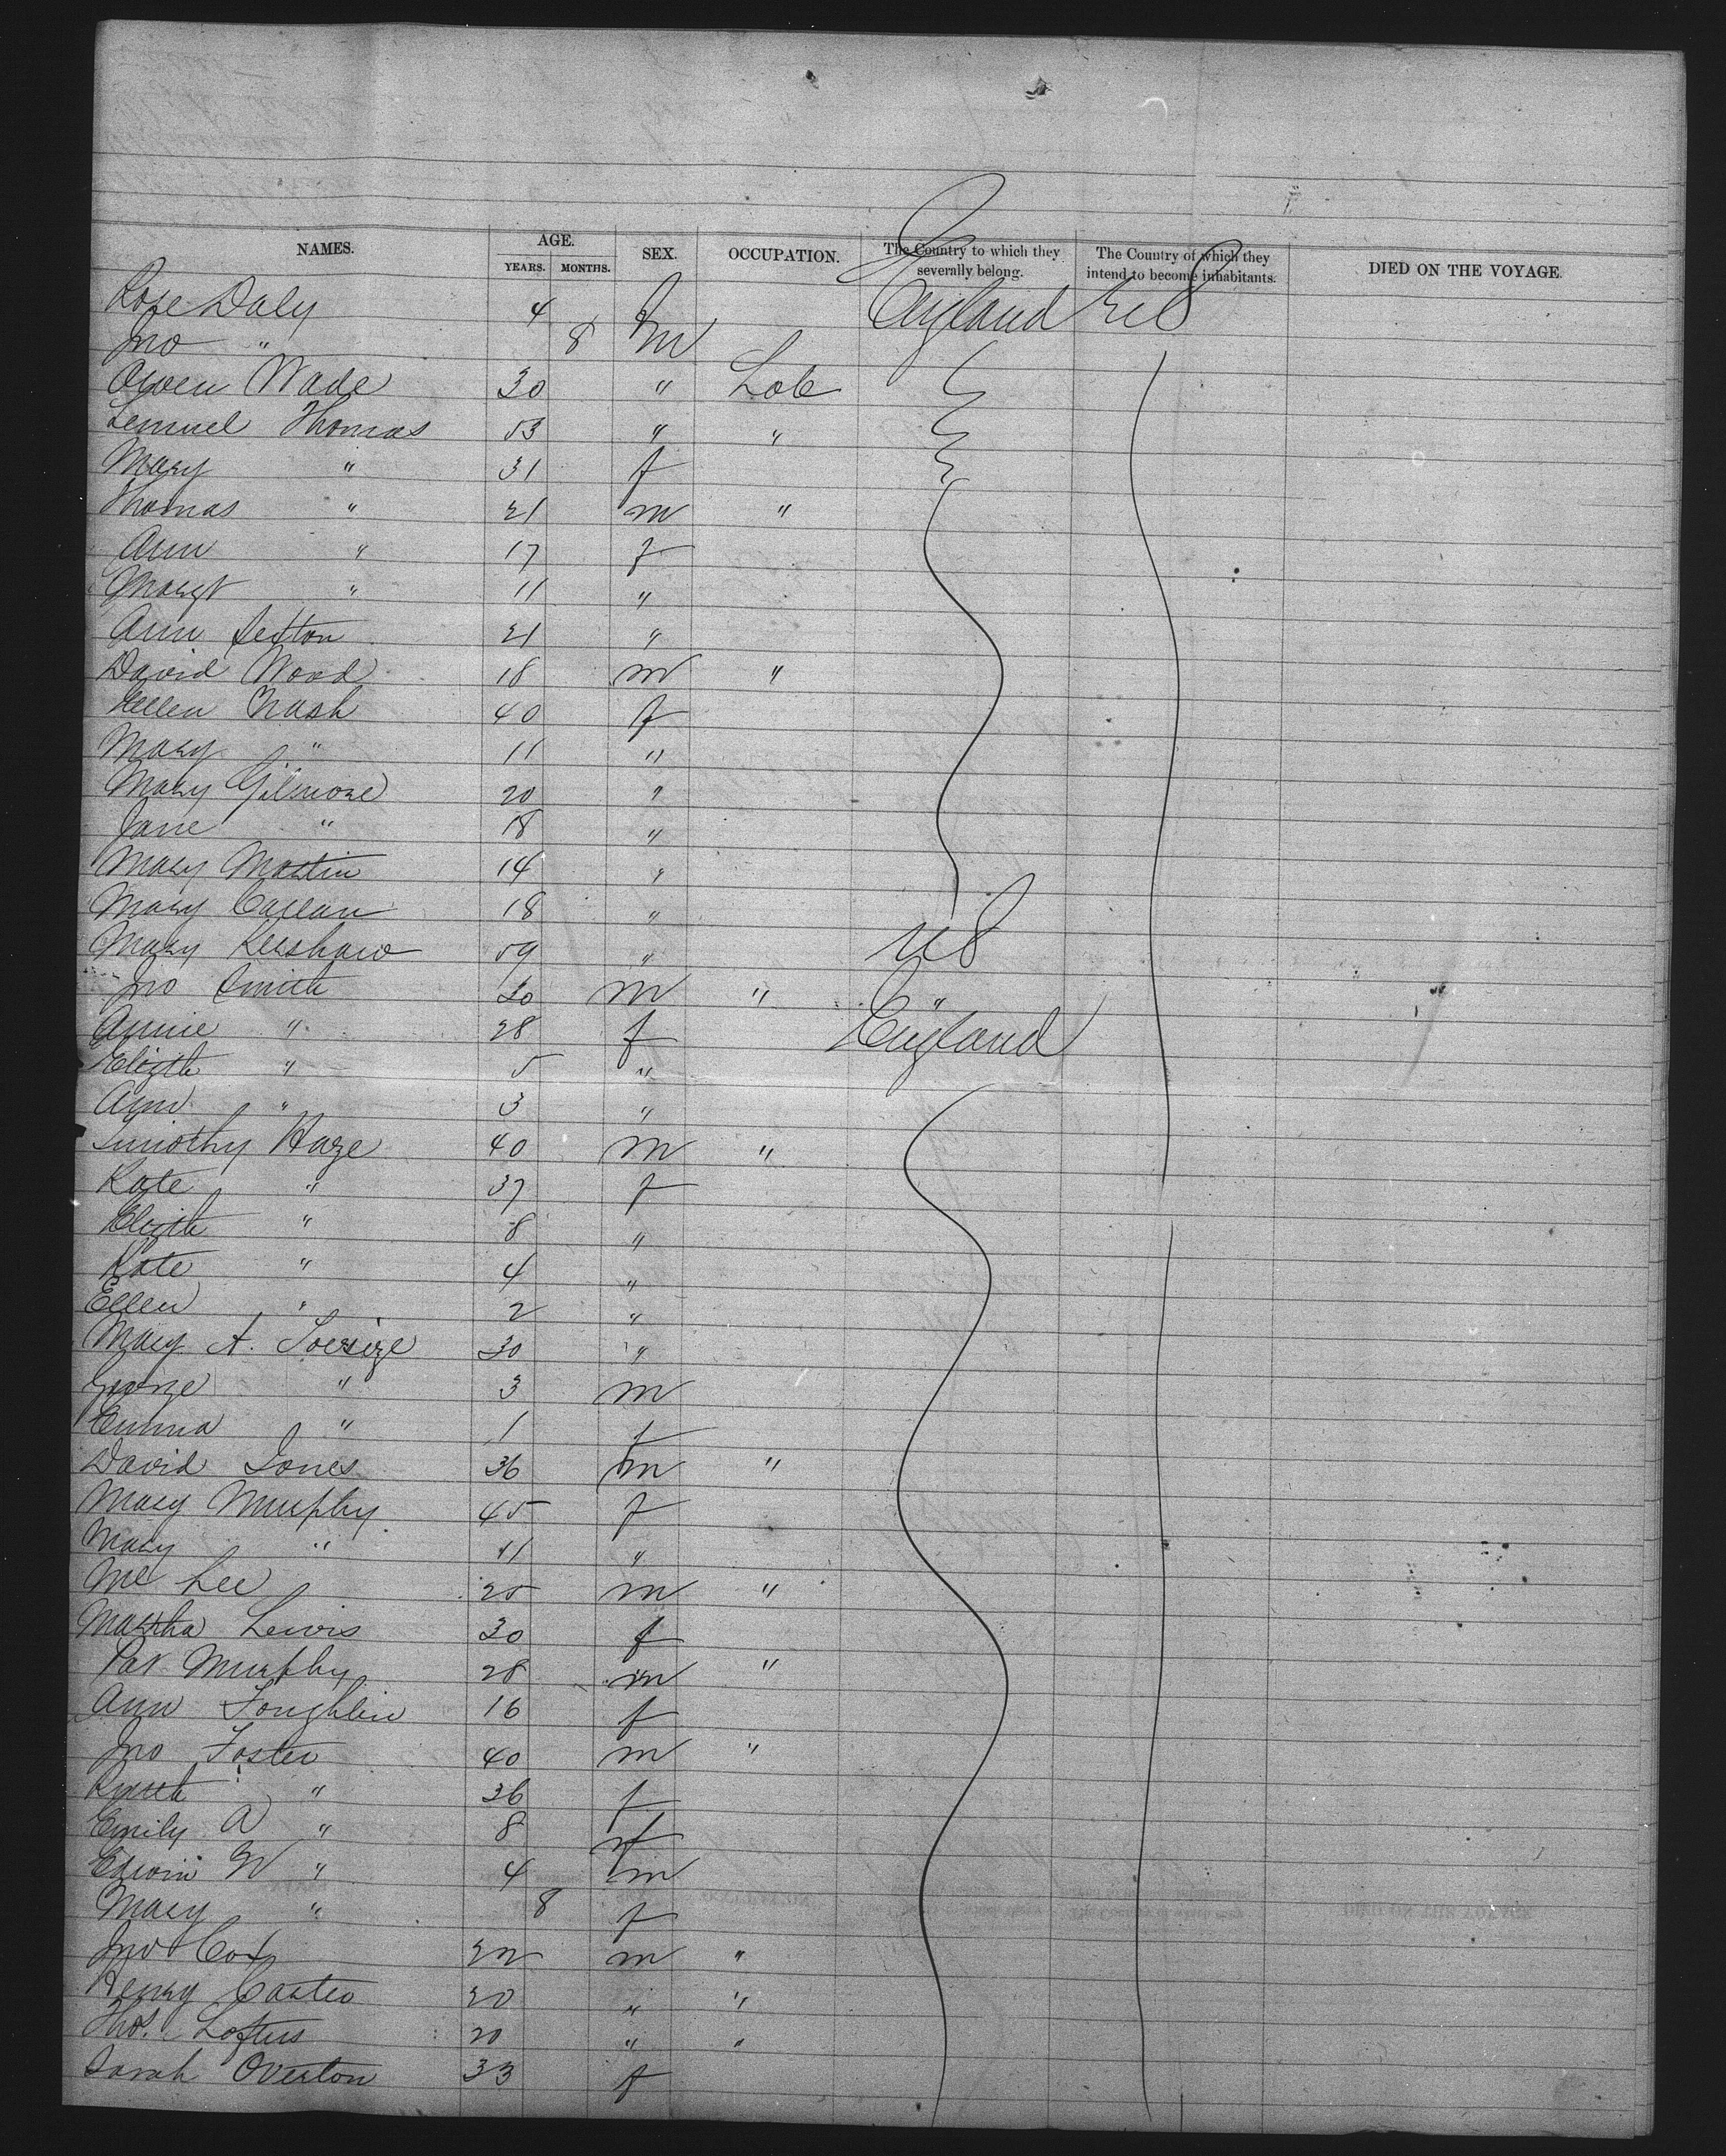 NAMES. AGE. YEARS. MONTHS. SEX. OCCUPATION. The Country to which they severally belong. The Country of which they intend to become inhabitants. DIED ON THE VOYAGE.
Rose Daly 4 f England US
Jno " 8 m
Owen Wade 30 " Lab
Lemuel Thomas 53 " "
Mary " 31 f
Thomas " 21 m "
Ann " 17 f
Margt " 11 "
Ann Sexton 21 "
David Wood 18 m "
Ellen Nash 40 f
Mary " 11 "
Mary Gilmore 20 "
Jane " 18 "
Mary Martin 14 "
Mary Callan 18 "
Mary Kershaw 59 " US
Jno Smith 30 m " "
Annie " 28 f England
Elizth " 5 "
Ann " 3 "
Timothy Haze 40 m "
Kate " 37 f
Elizth " 8 "
Kate " 4 "
Ellen " 2 "
Mary A. 30 "
George " 3 m
Emma " 1 f
David Jones 36 m "
Mary Murphy 45 f
Mary " 11 "
Lee 25 m "
Martha Lewis 30 f
Pat Murphy 28 m "
Ann Loughlin 16 f
Jno Foster 40 m "
" 36 f
Emily A " 8 f
Edwin W " 4 m
Mary " 8 f
Jno Cox 22 m "
Henry Carter 20 " "
Thos. Loftus 20 " "
Sarah Overton 33 f